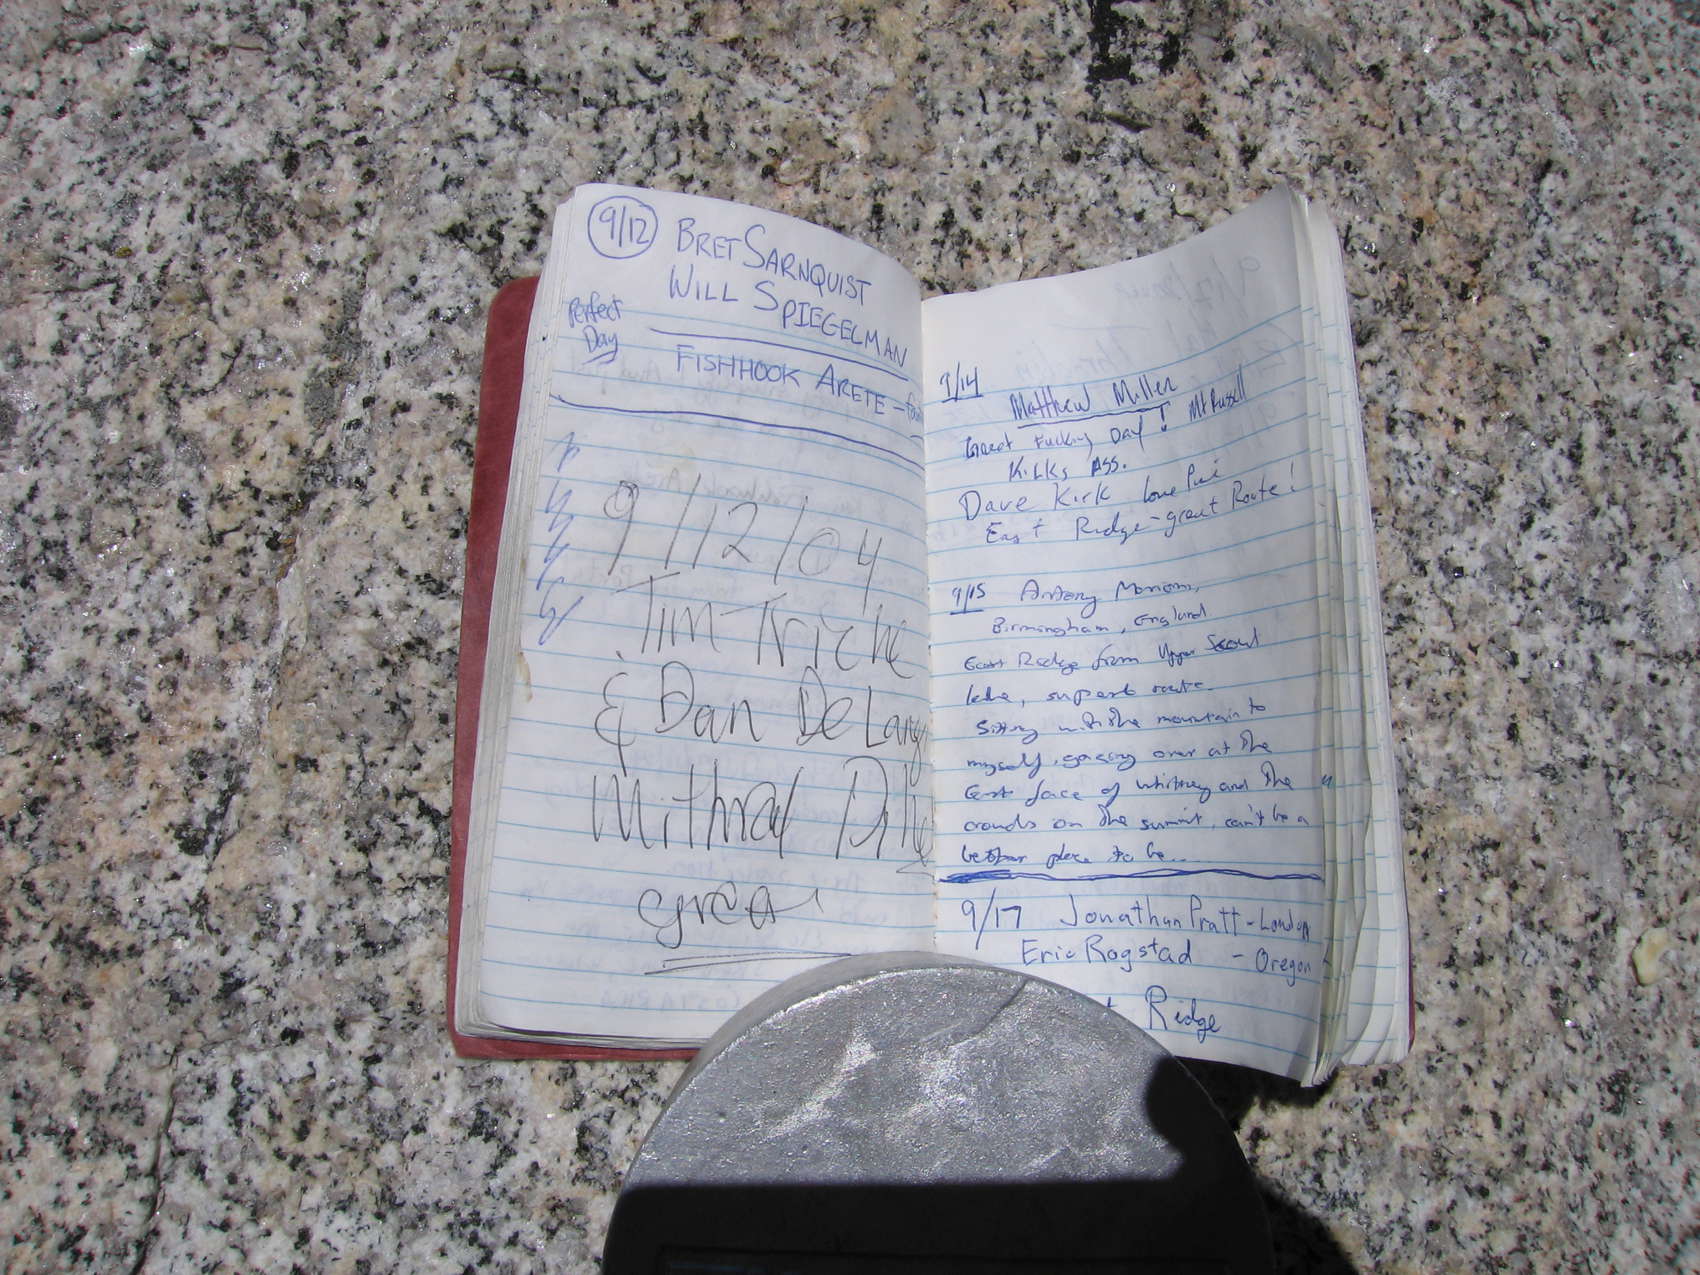 9/12 BRET SARNQUIST
WILL SPIEGELMAN
Perfect
Day
FISHHOOK ARETE -
9/12/04
Tim Triche
& Dan DeLany
Mithral Dihe
great
9/14
Matthew Miller
Great Fucking Day! Mt Russell
Kicks Ass.
Dave Kirk Lone Pine
East Ridge - great Route!
9/15 Antony
Birmingham, England
East Ridge from Upper Scout
lake, superb route.
Sitting with the mountain to
myself, gazing over at the
East face of whitney and the
crowds on the summit, can't be a
better place to be...
9/17 Jonathan Pratt - London
Eric Rogstad - Oregon
Ridge